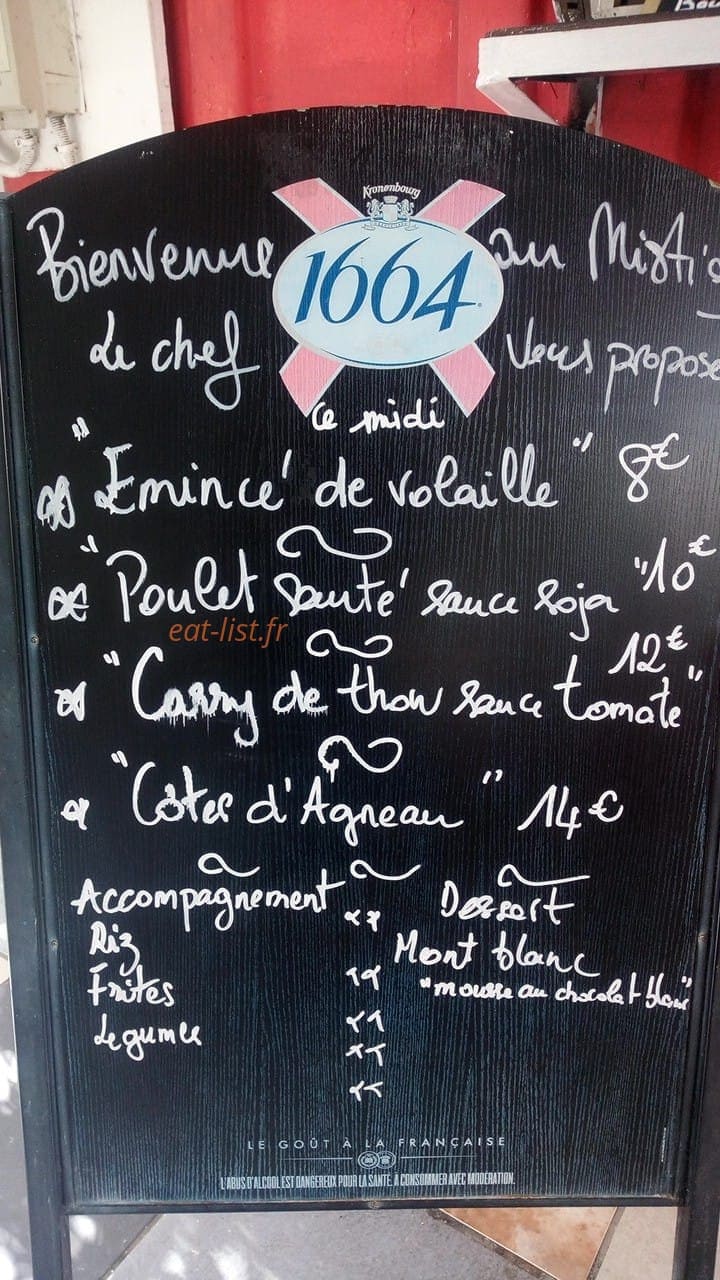 Kronenbourg
1664
Bienvenue au Misti's
Le chef Vous propose
ce midi
"Emincé de volaille" 8€
"Poulet sauté sauce soja" 10€
eat-list.fr
12€
"Carry de thon sauce tomate"
"Côtes d'Agneau" 14€
Accompagnement
Riz
Frites
Legumes
Dessert
Mont blanc
"mousse au chocolat blanc"
LE GOÛT À LA FRANÇAISE
L'ABUS D'ALCOOL EST DANGEREUX POUR LA SANTÉ. À CONSOMMER AVEC MODÉRATION.